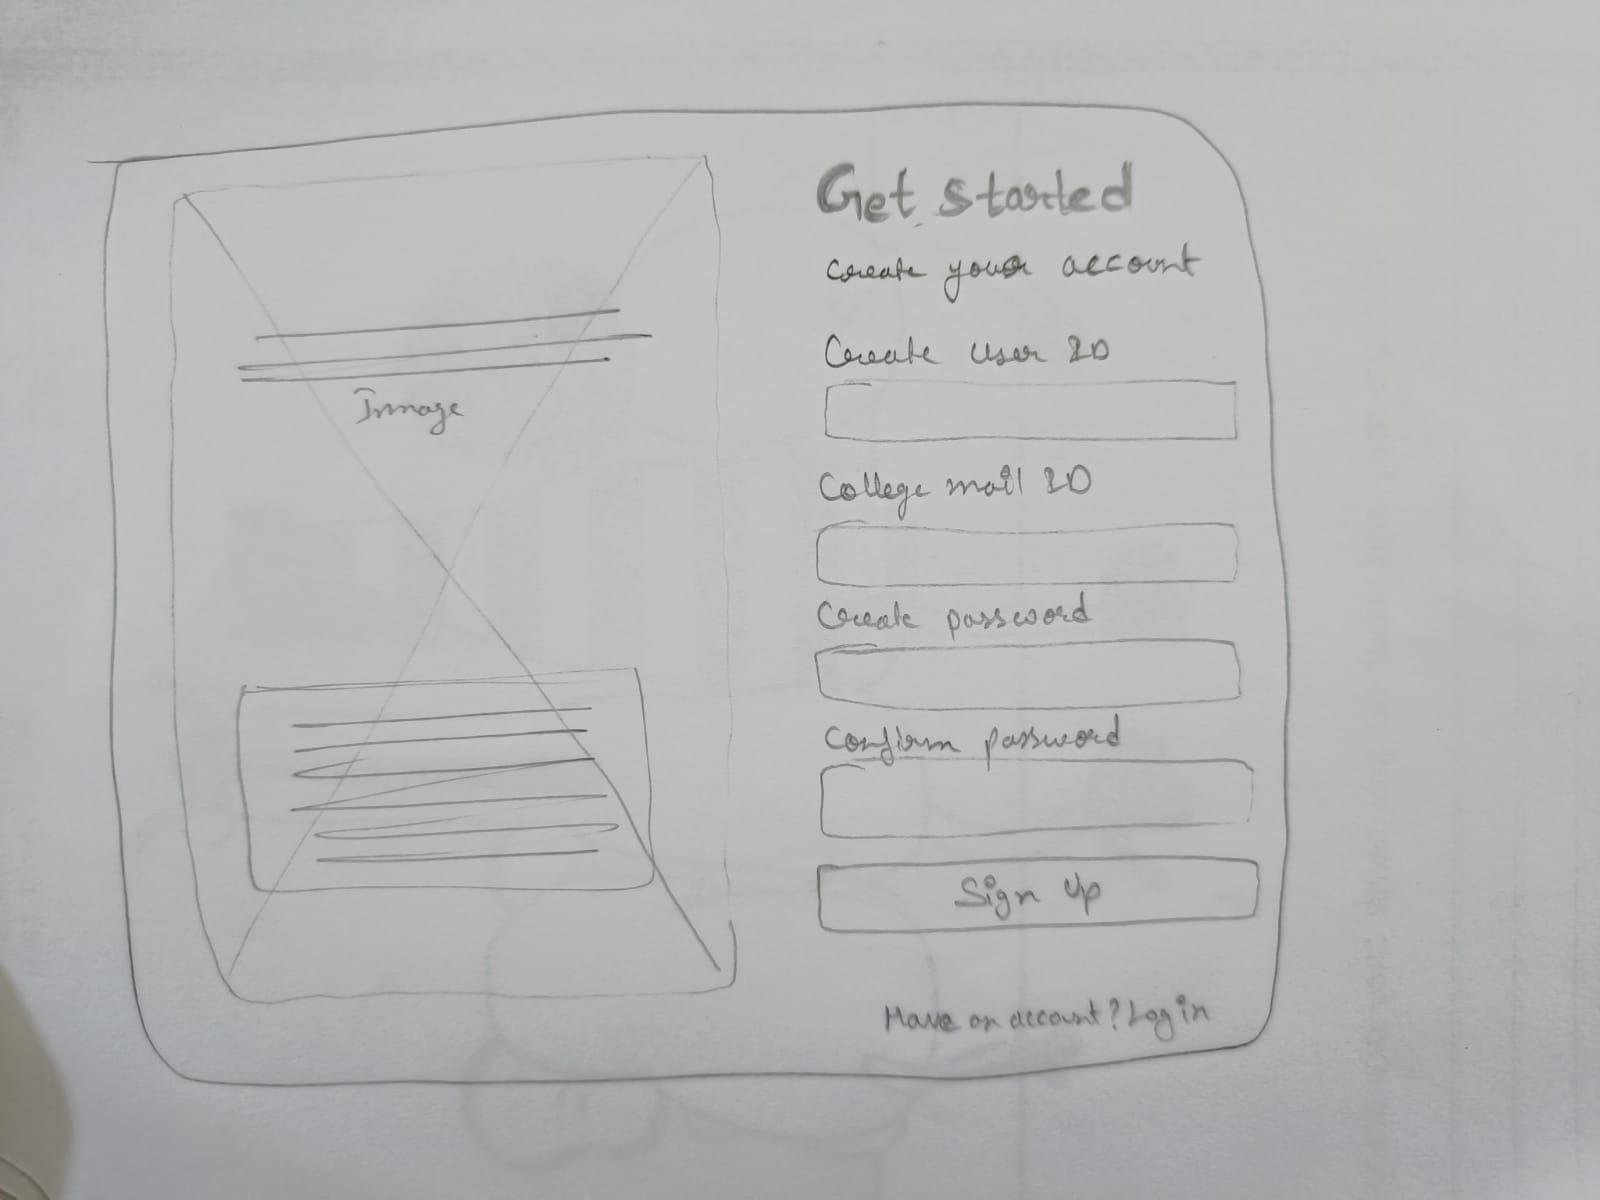 Image
Get started
Create your account
Create User ID
College mail ID
Create password
Confirm password
Sign Up
Have an account? Log in